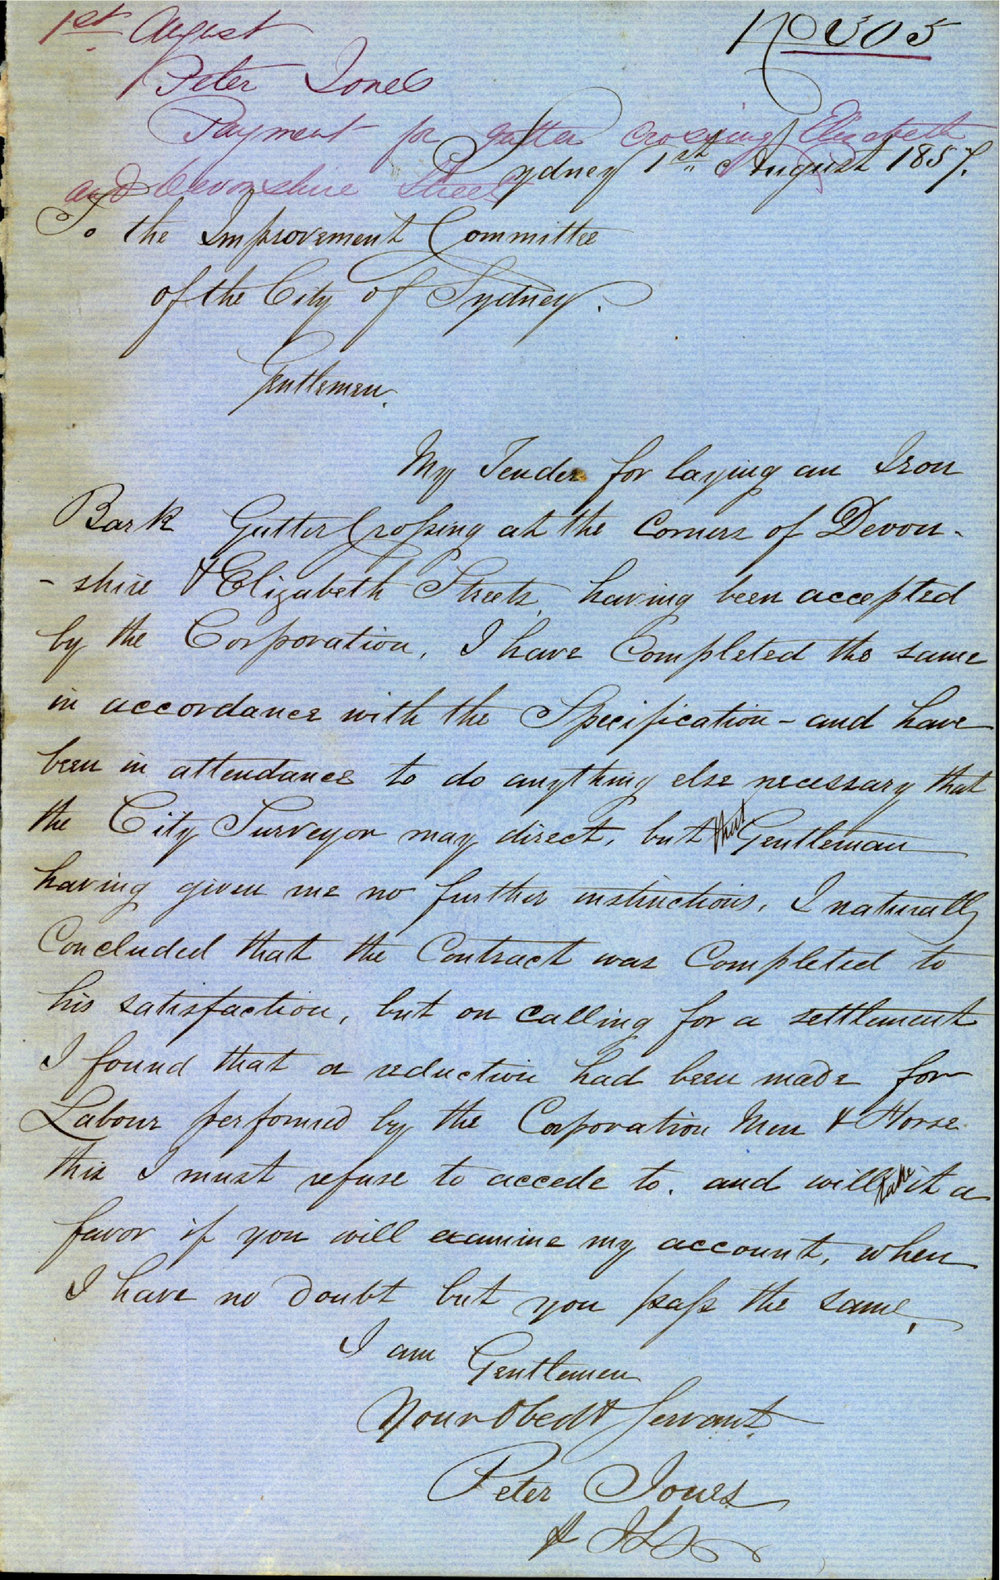 1st August
No 305
Peter Jones
Payment for gutter crossing Elizabeth
and Devonshire Streets
Sydney 1st August 1857.
To the Improvement Committee
of the City of Sydney.
Gentlemen.
My Tender for laying an Iron
Bark Gutter Crossing at the Corners of Devon-
-shire & Elizabeth Streets, having been accepted
by the Corporation, I have Completed the same
in accordance with the Specification - and have
been in attendance to do anything else necessary that
the City Surveyor may direct, but that Gentleman
having given me no further instructions, I naturally
Concluded that the Contract was Completed to
his satisfaction, but on calling for a settlement
I found that a reduction had been made for
Labour performed by the Corporation Men & Horse
this I must refuse to accede to. and will take it a
favor if you will examine my account, when
I have no doubt but you pass the same,
I am Gentlemen
Your Obedt Servant
Peter Jones